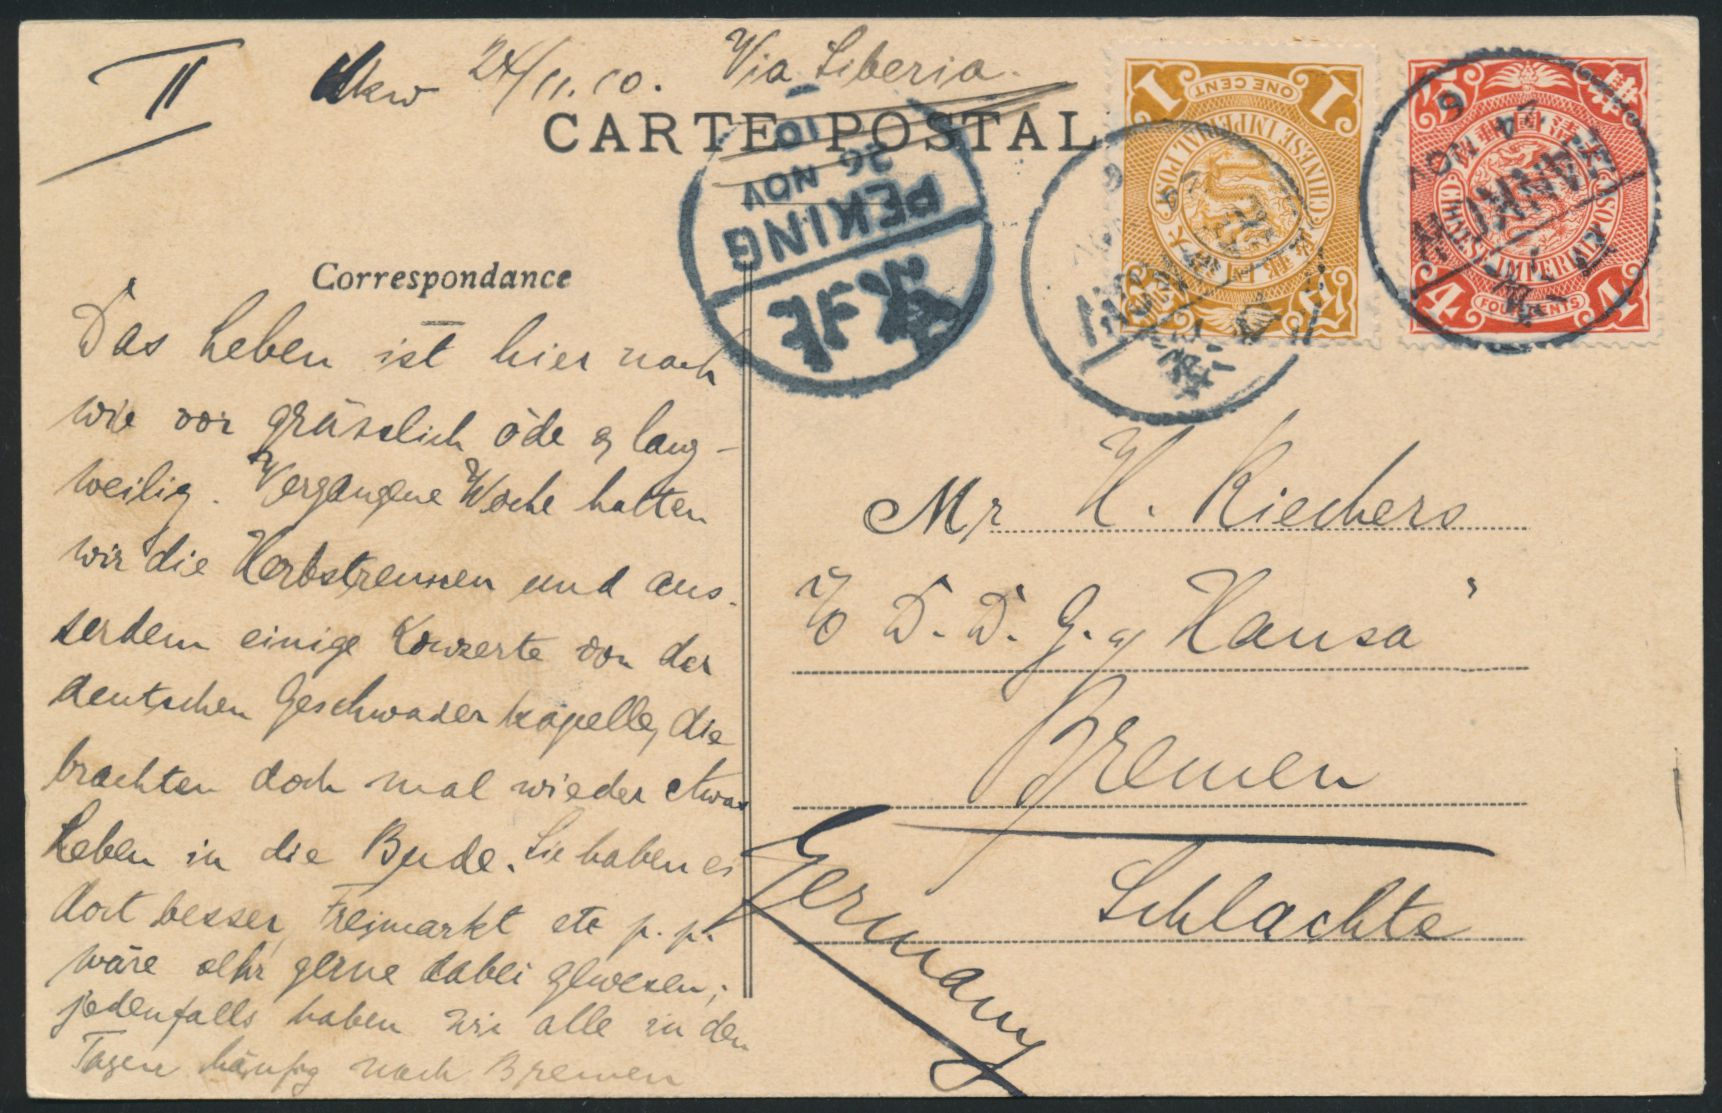 II Hkw 24/11.10. Via Siberia.
CARTE POSTAL
Correspondance
Das Leben ist hier nach
wie vor grässlich öde & lang-
weilig. Vergangene Woche hatten
wir die Herbstrennen und aus-
serdem einige Konzerte von der
deutschen Geschwaderkapelle, die
brachten doch mal wieder etwas
Leben in die Bude. Sie haben es
dort besser, Freimarkt etc p.p.
wäre sehr gerne dabei gewesen;
jedenfalls haben wir alle in den
Tagen häufig nach Bremen
PEKING
26 NOV
10
北京
CHINESE IMPERIAL POST
ONE CENT
1 1
IMPERIAL
FOUR CENTS
4 4
HANKOW
24 NOV
Mr H. Riechers
c/o D. D. G. „Hansa"
Bremen
Schlachte
Germany